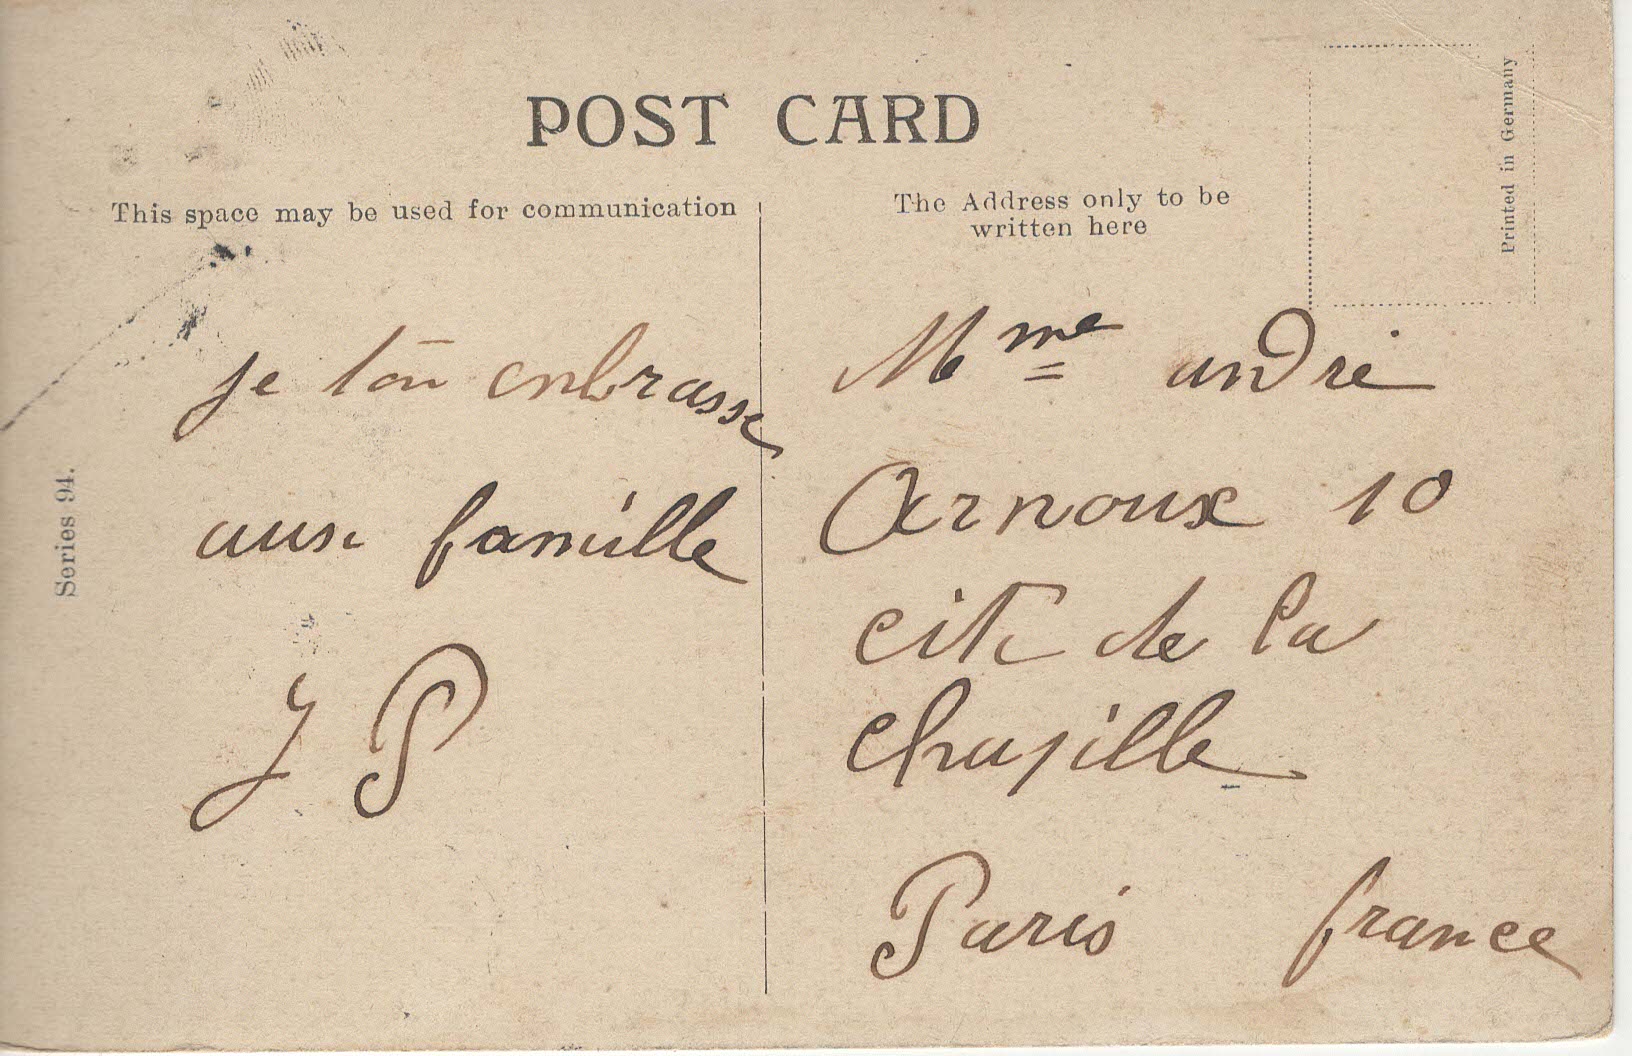 POST CARD
This space may be used for communication
The Address only to be
written here
Printed in Germany
Series 94.
je enbrasse
aussi famille
J P
Mme andré
Arnoux 10
cité de la
chapille
Paris france